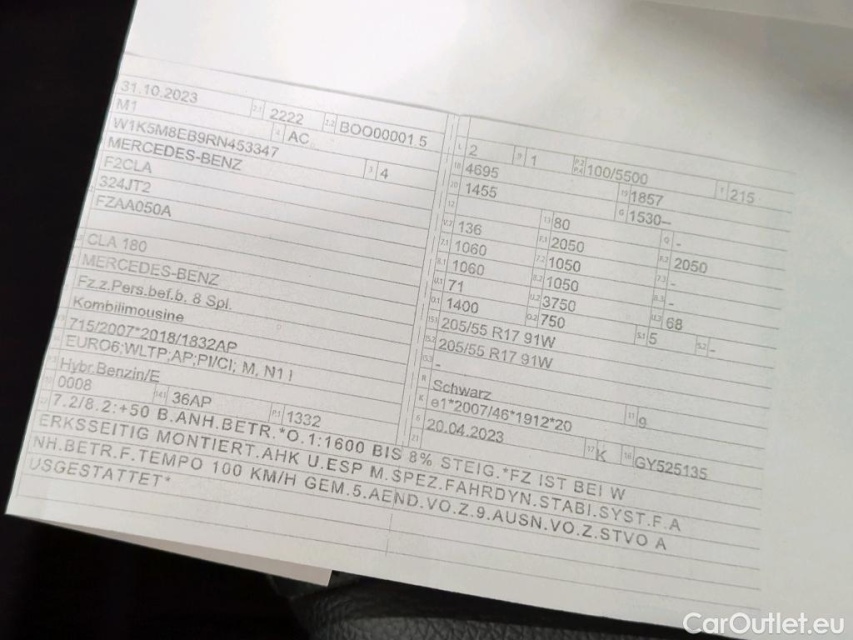 31.10.2023 2.1 2222 2.2 BOO00001 5
M1 4 AC
W1K5M8EB9RN453347 3 4
MERCEDES-BENZ
F2CLA
324JT2
FZAA050A
CLA 180
MERCEDES-BENZ
Fz.z.Pers.bef.b. 8 Spl.
Kombilimousine
715/2007*2018/1832AP
EURO6;WLTP;AP;PI/CI; M, N1 I
Hybr.Benzin/E
0008 14.1 36AP P.1 1332
L 2 9 1 P.2 P.4 100/5500 T 215
18 4695 19 1857
20 1455 G 1530–
12 13 80 Q -
136 2050 2050
1060 1050 -
1060 1050 -
71 3750 68
1400 750 5 -
205/55 R17 91W
205/55 R17 91W
-
R Schwarz 11 9
K e1*2007/46*1912*20
6 20.04.2023 17 K 16 GY525135
7.2/8.2:+50 B.ANH.BETR.*O.1:1600 BIS 8% STEIG.*FZ IST BEI W
ERKSSEITIG MONTIERT.AHK U.ESP M.SPEZ.FAHRDYN.STABI.SYST.F.A
NH.BETR.F.TEMPO 100 KM/H GEM.5.AEND.VO.Z.9.AUSN.VO.Z.STVO A
USGESTATTET*
CarOutlet.eu